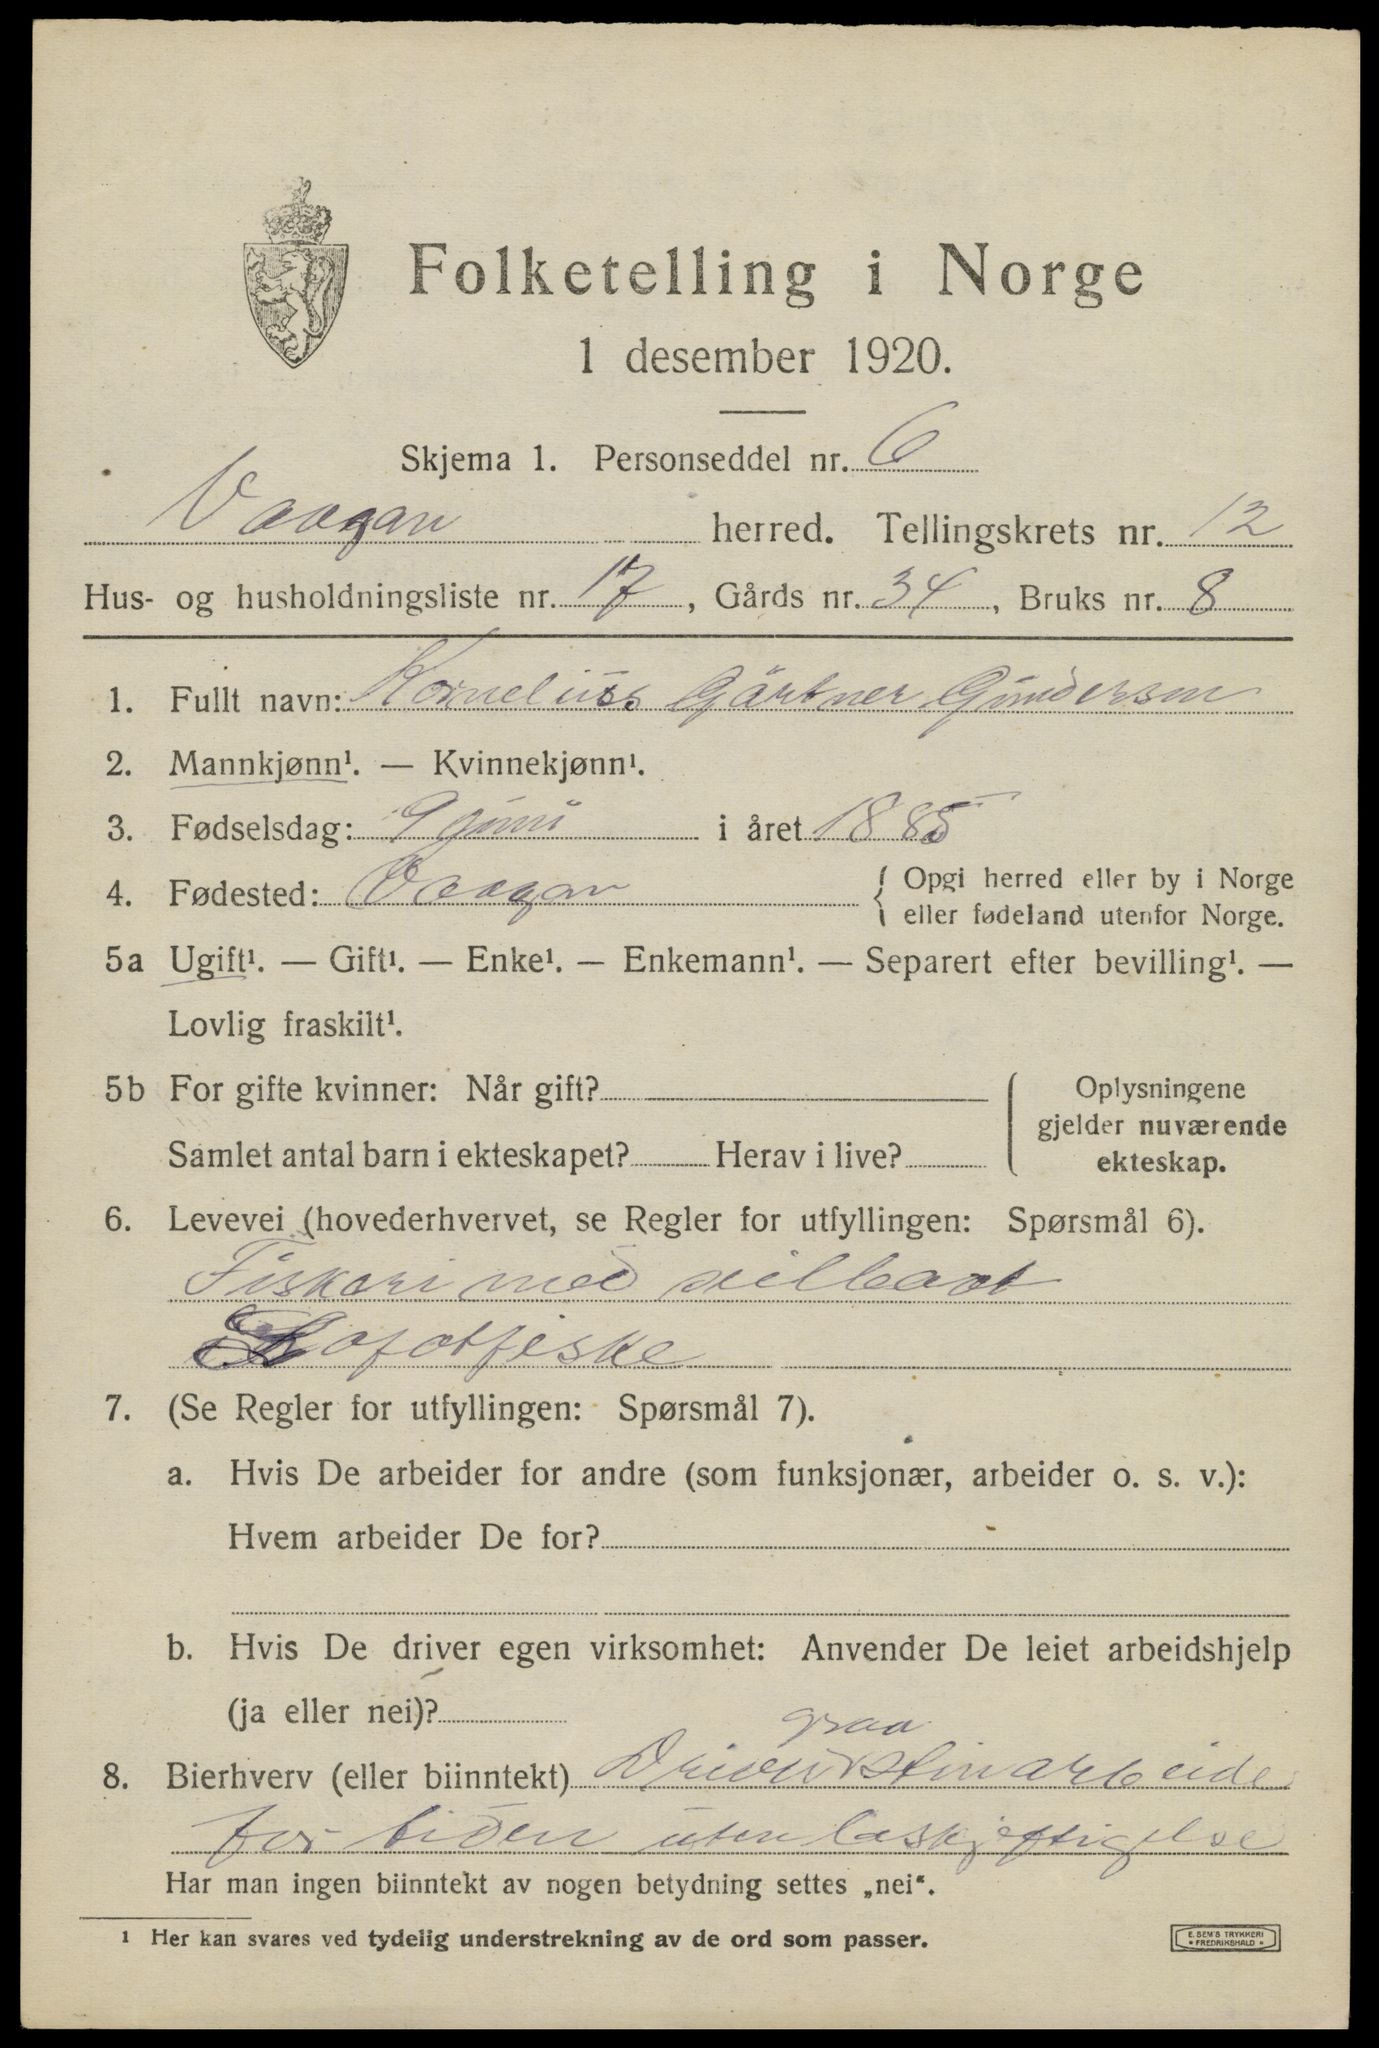 Folketelling i Norge
1 desember 1920.
Skjema 1. Personseddel nr. 6
Vaagan herred. Tellingskrets nr. 12
Hus- og husholdningsliste nr. 17, Gårds nr. 34, Bruks nr. 8
1. Fullt navn: Kornelius Gärtner Gundersen
2. Mannkjønn¹. — Kvinnekjønn¹.
3. Fødselsdag: 9 juni i året 1885
4. Fødested: Vaagan { Opgi herred eller by i Norge
eller fødeland utenfor Norge.
5a Ugift¹. — Gift¹. — Enke¹. — Enkemann¹. — Separert efter bevilling¹. —
Lovlig fraskilt¹.
5b For gifte kvinner: Når gift? Oplysningene
gjelder nuværende
Samlet antal barn i ekteskapet? Herav i live? ekteskap.
6. Levevei (hovederhvervet, se Regler for utfyllingen: Spørsmål 6).
Fiskeri med seilbaat
Lofotfiske
7. (Se Regler for utfyllingen: Spørsmål 7).
a. Hvis De arbeider for andre (som funksjonær, arbeider o. s. v.):
Hvem arbeider De for?
b. Hvis De driver egen virksomhet: Anvender De leiet arbeidshjelp
(ja eller nei)?
graa
8. Bierhverv (eller biinntekt) Driver stinarbeide
for tiden uten beskjeftigelse
Har man ingen biinntekt av nogen betydning settes „nei“.
¹ Her kan svares ved tydelig understrekning av de ord som passer.
E. SEM'S TRYKKERI
* FREDRIKSHALD *